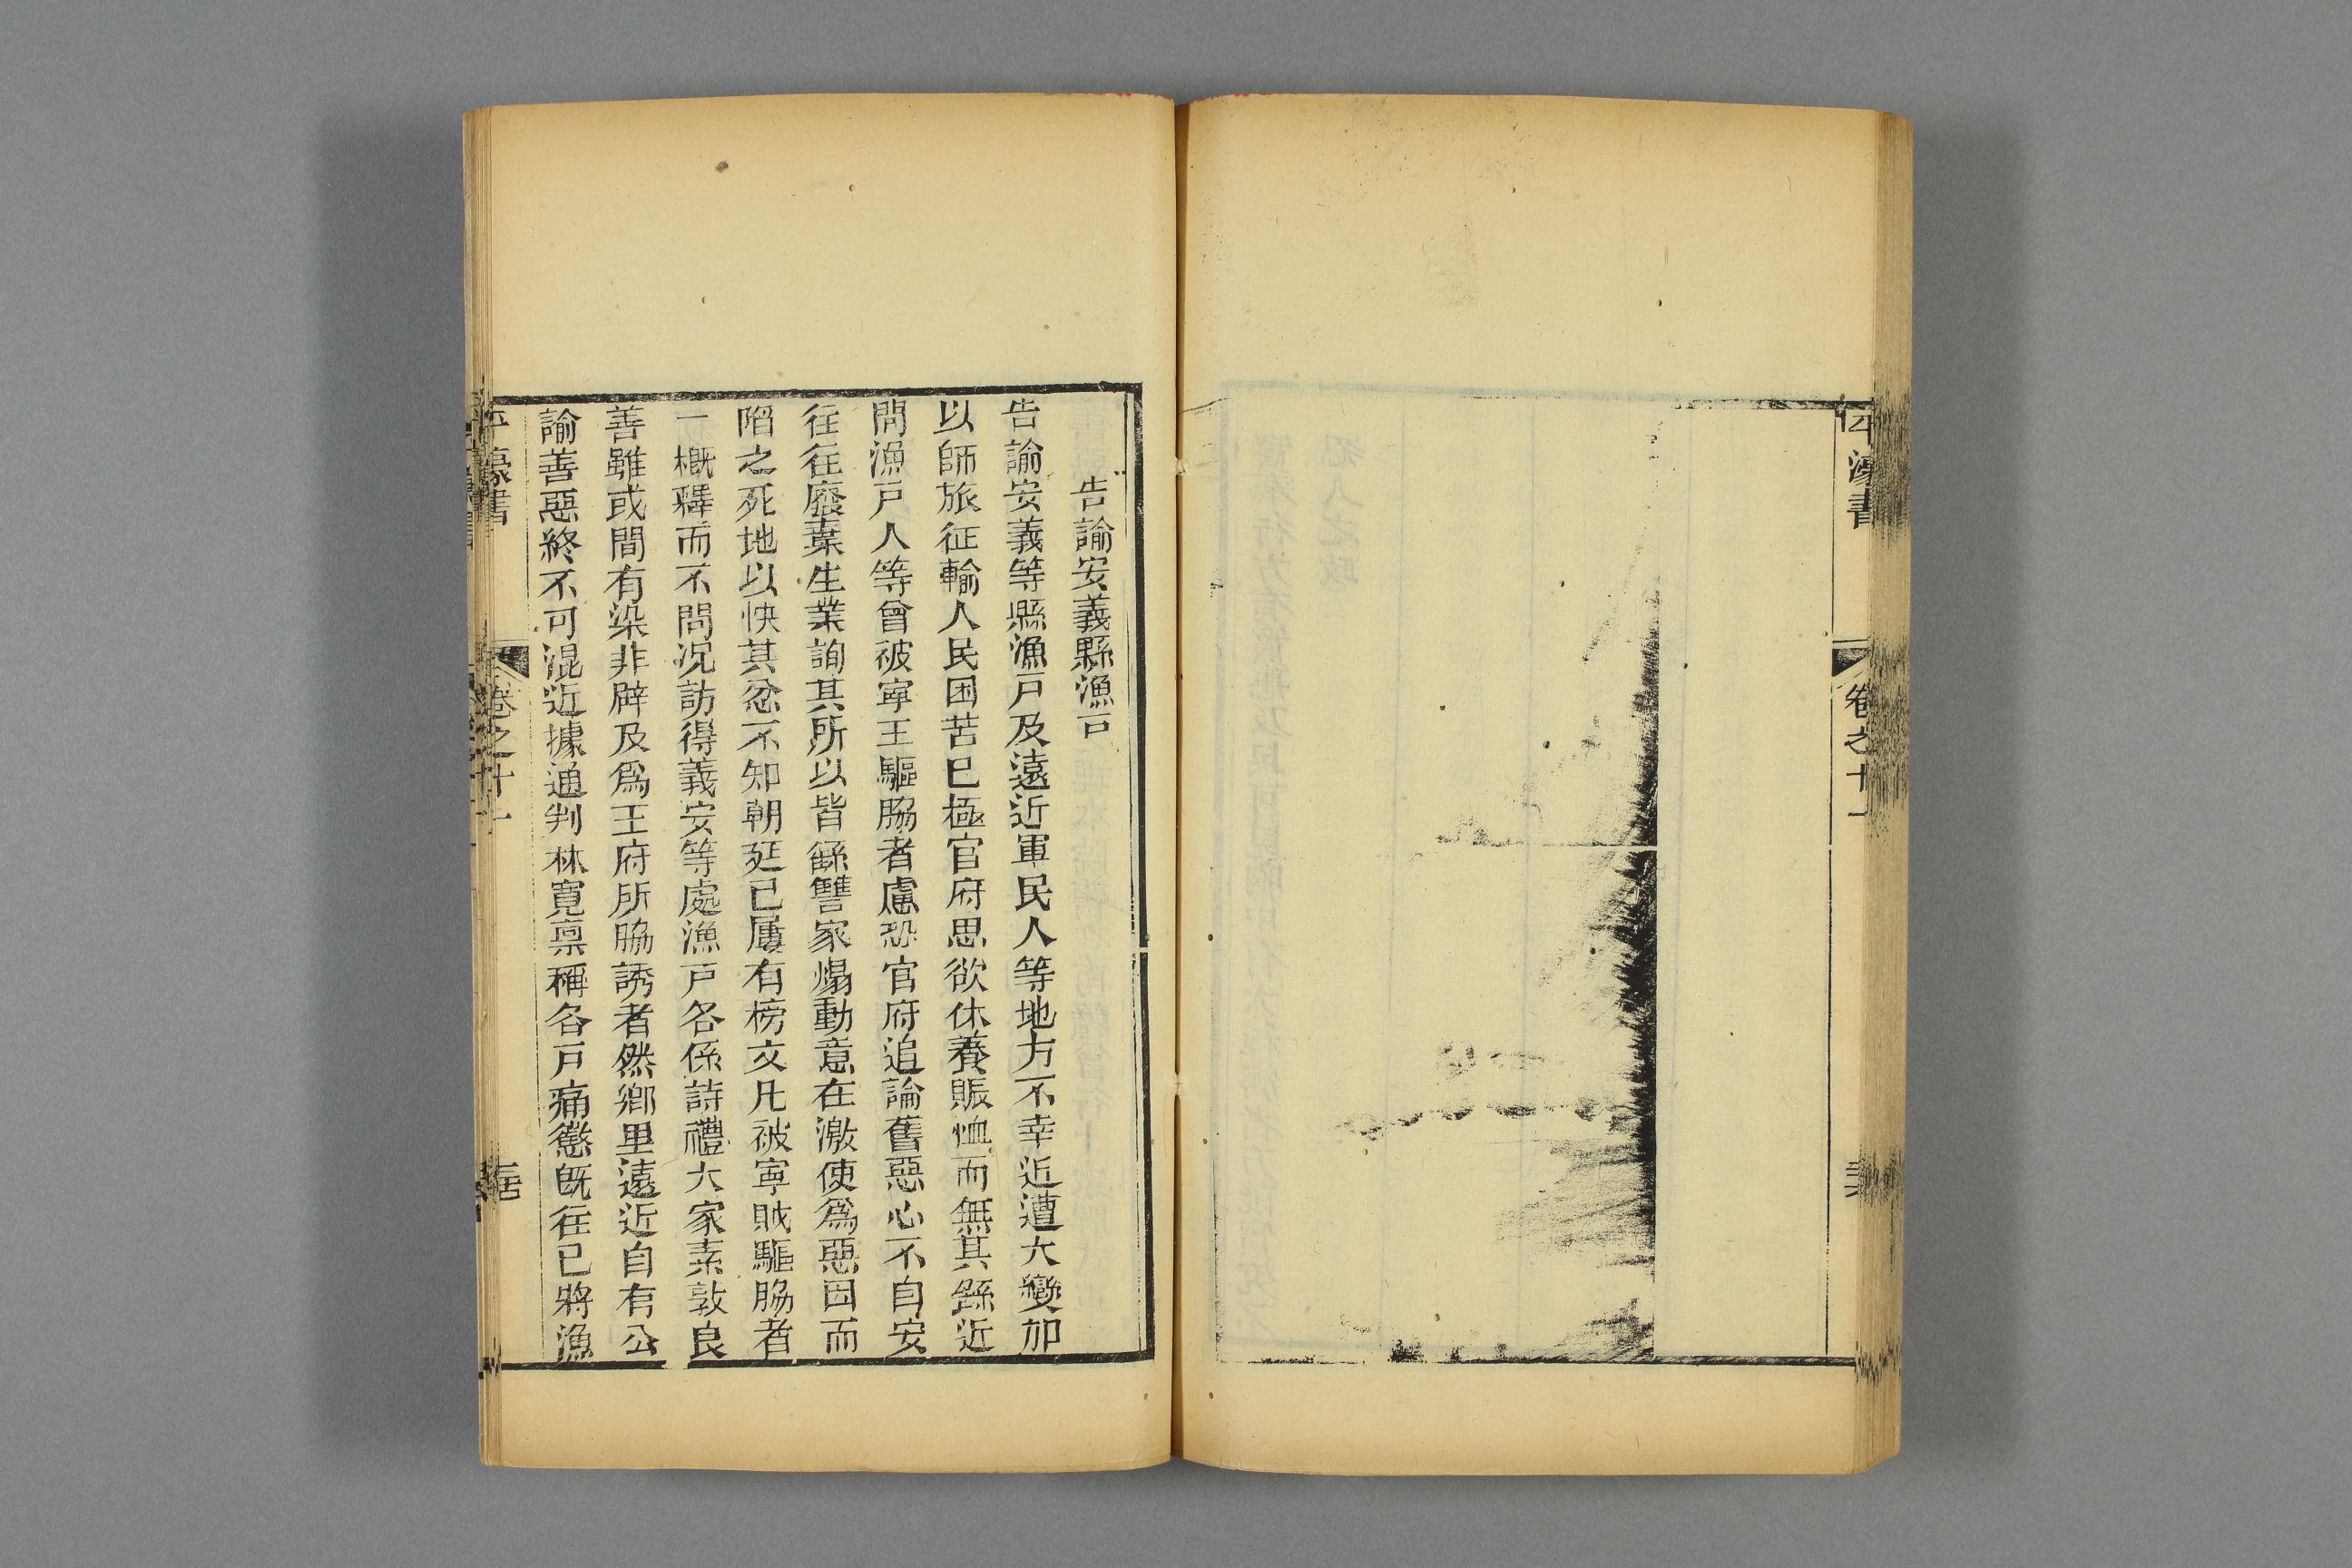 平濠書
卷之十一
告諭安義縣漁戸
告諭安義等縣漁戸及遠近軍民人等地方不幸近遭大變加
以師旅征輸人民困苦已極官府思欲休養賑恤而無其繇近
間漁戸人等曾被寧王驅脇者慮恐官府追論舊惡心不自安
往往廢棄生業詢其所以皆繇讐家煽動意在激使爲惡因而
陷之死地以快其忿不知朝廷已屢有榜文凡被寧賊驅脇者
一概釋而不問况訪得義安等處漁戸各係詩禮大家素敦良
善雖或間有染非辟及爲王府所脇誘者然鄉里遠近自有公
論善惡終不可混近據通判林寛禀稱各戸痛懲旣往已將漁
平濠書
卷之十一